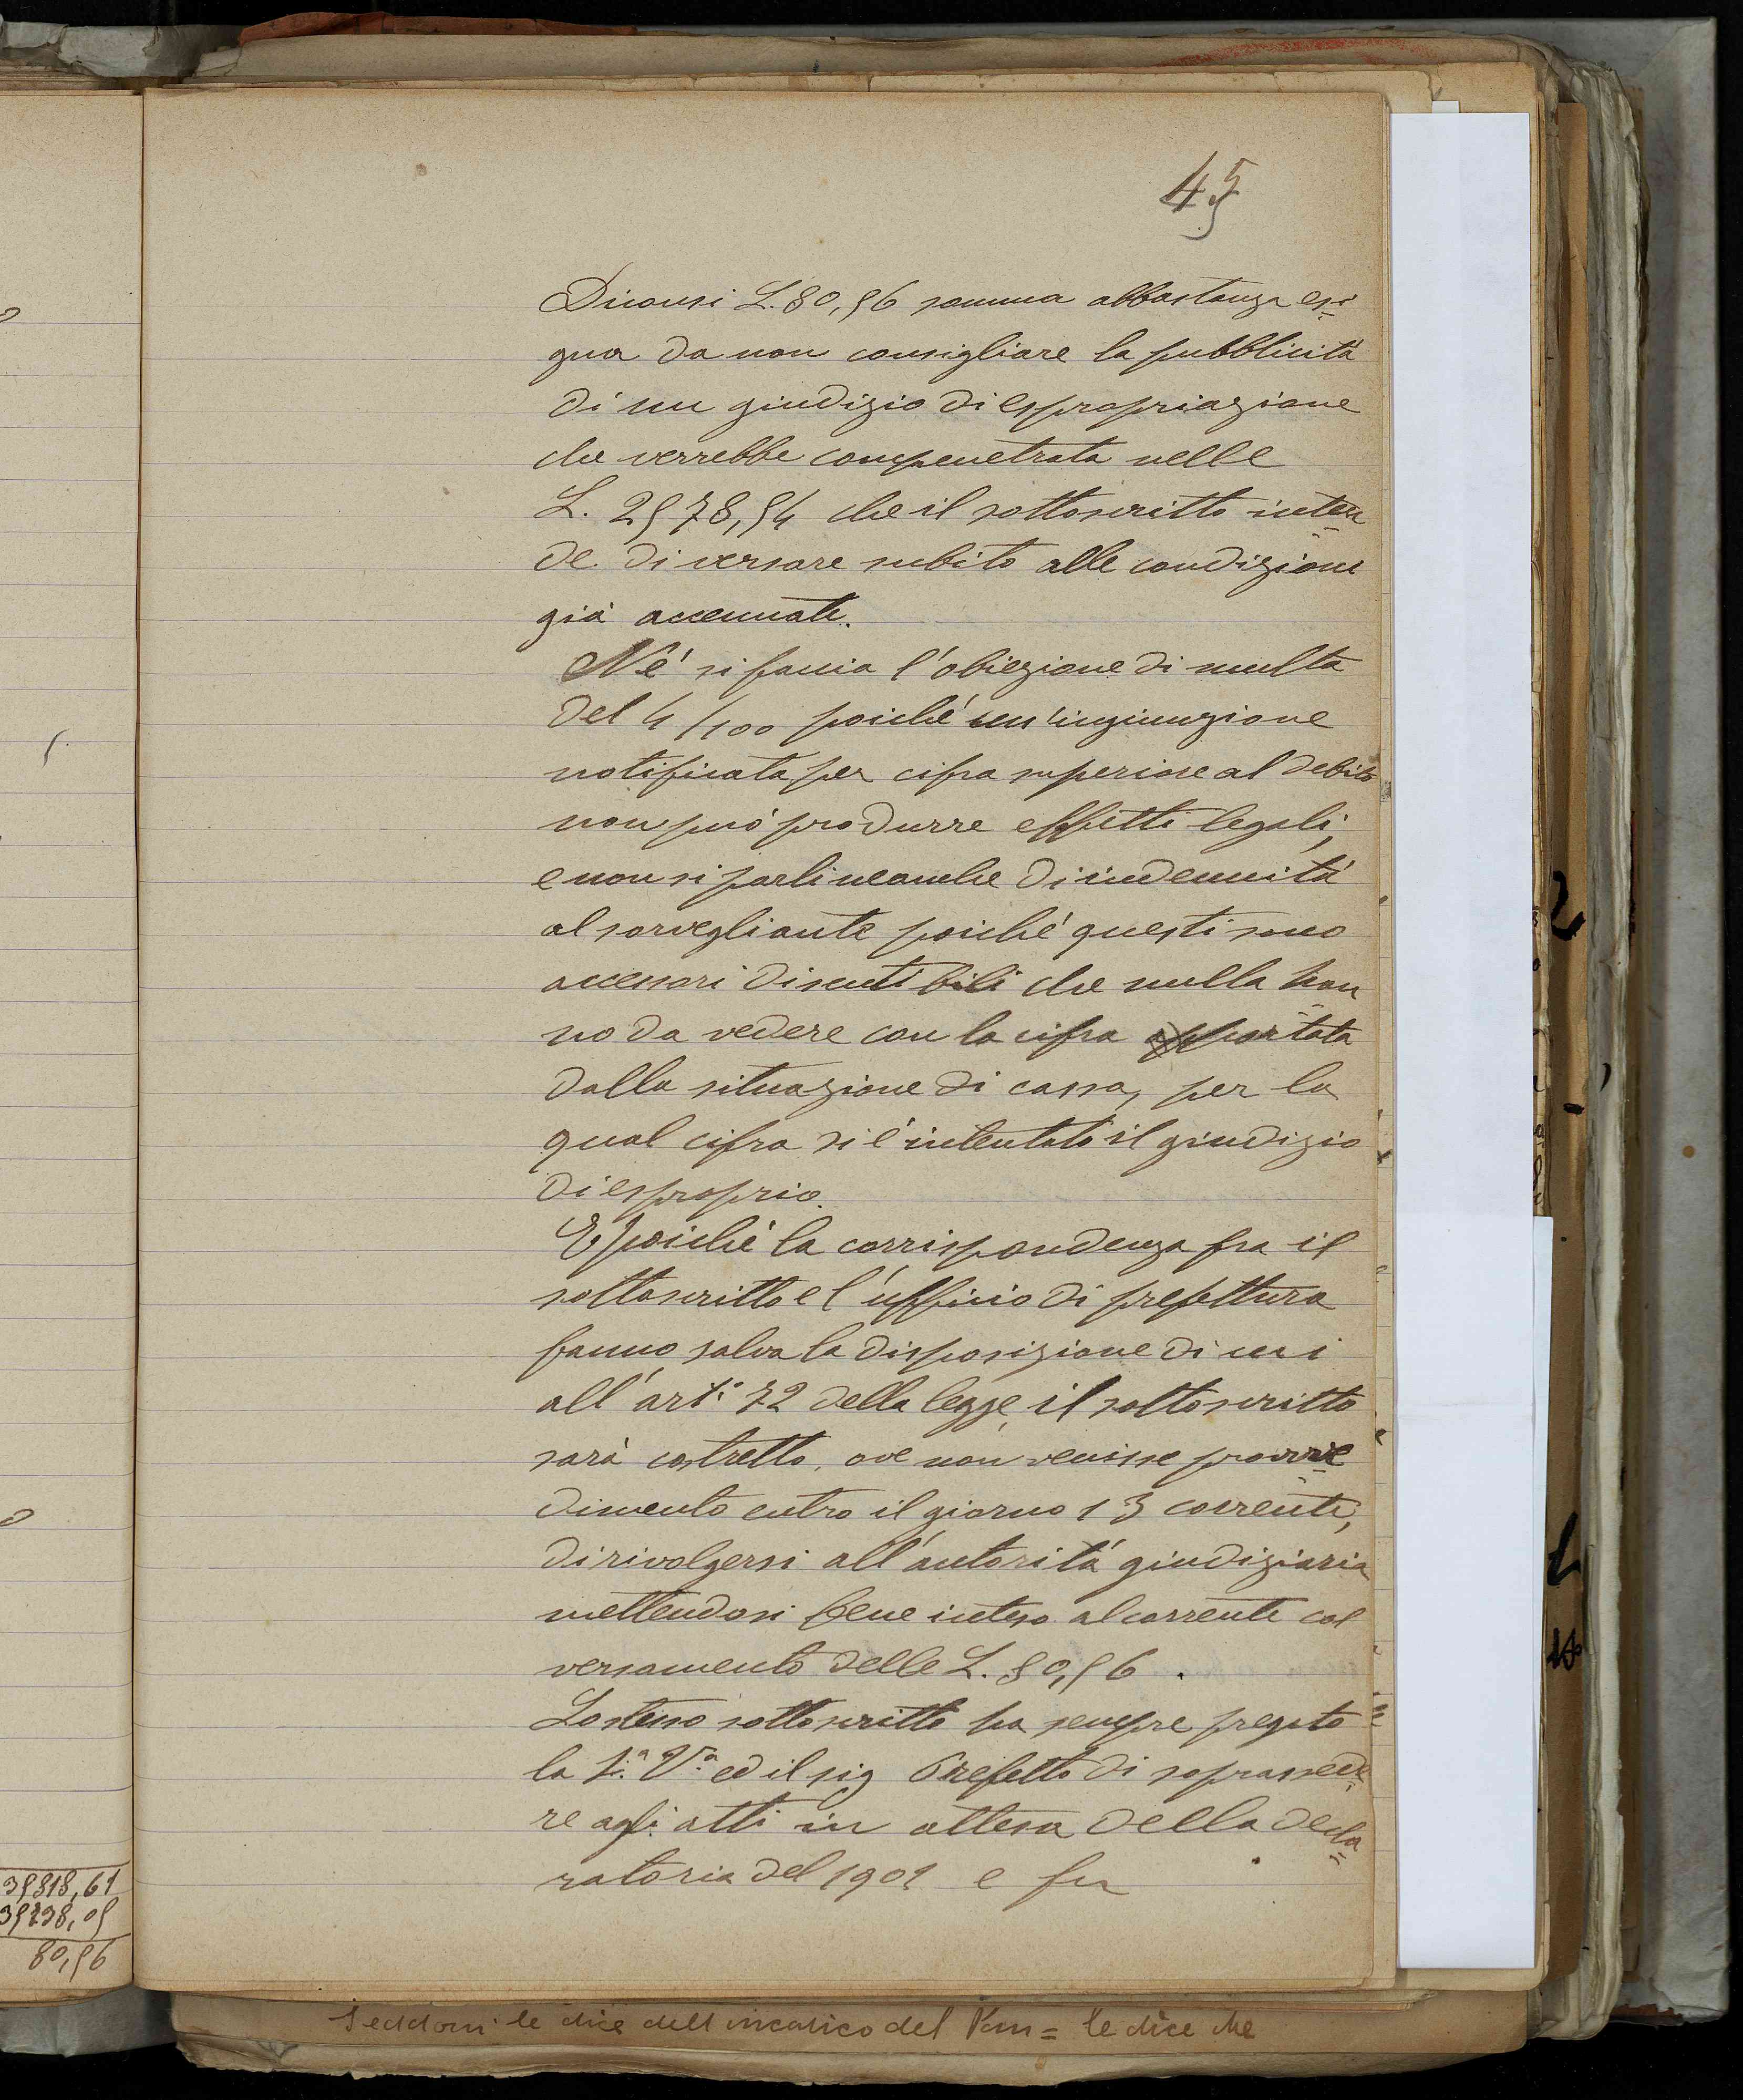 45
Diconsi L. 80,56 somma abbastanza esi
gua da non consigliare la pubblicità
di un giudizio di espropriazione
che verrebbe compenetrata nelle
L. 2578,54 che il sottoscritto inten
de di versare subito alle condizione
già accennate.
Nè si faccia l'obiezione di multa
del 4/100 poichè un'ingiunzione
notificata per cifra superiore al debito
non può produrre effetti legali,
e non si parli neanche di indennità
al sorvegliante poichè questi sono
accessori discutibili che nulla han
no da vedere con la cifra apportata
dalla situazione di cassa, per la
qual cifra si è intentato il giudizio
di esproprio.
E poichè la corrispondenza fra il
sottoscritto e l'ufficio di prefettura
fanno salva la disposizione di cui
all'art.º 72 della legge, il sottoscritto
sarà costretto, ove non venisse provve
dimento entro il giorno 13 corrente,
di rivolgersi all'autorità giudiziaria
mettendosi bene inteso al corrente col
versamento delle L. 80,56.
Lo stesso sottoscritto ha sempre pregato
la S.ª V.ª ed il sig Prefetto di soprassede
re agli atti in attesa della decla
ratoria del 1901 e fu
35318,61
35238,05
80,56
le dice dell incarico del = le dice che